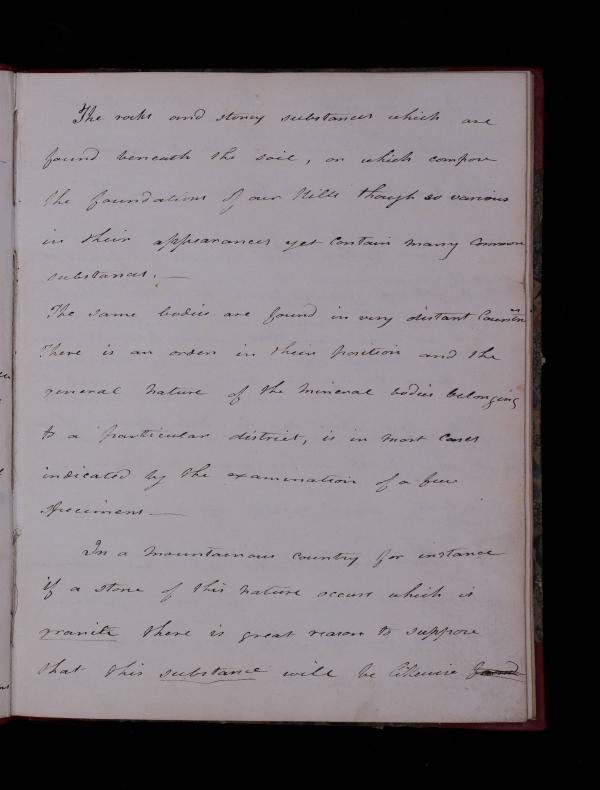 The rocks and stoney substances which are
found beneath the soil, or which compose
the foundations of our Hills though so various
in their appearances yet contain many common
substances. —
The same bodies are found in very distant Countries
There is an order in their position and the
general nature of the mineral bodies belonging
to a particular district, is in most cases
indicated by the examination of a few
specimens —
In a mountainous country for instance
if a stone of this nature occurs which is
granite there is great reason to suppose
that this substance will be likewise found